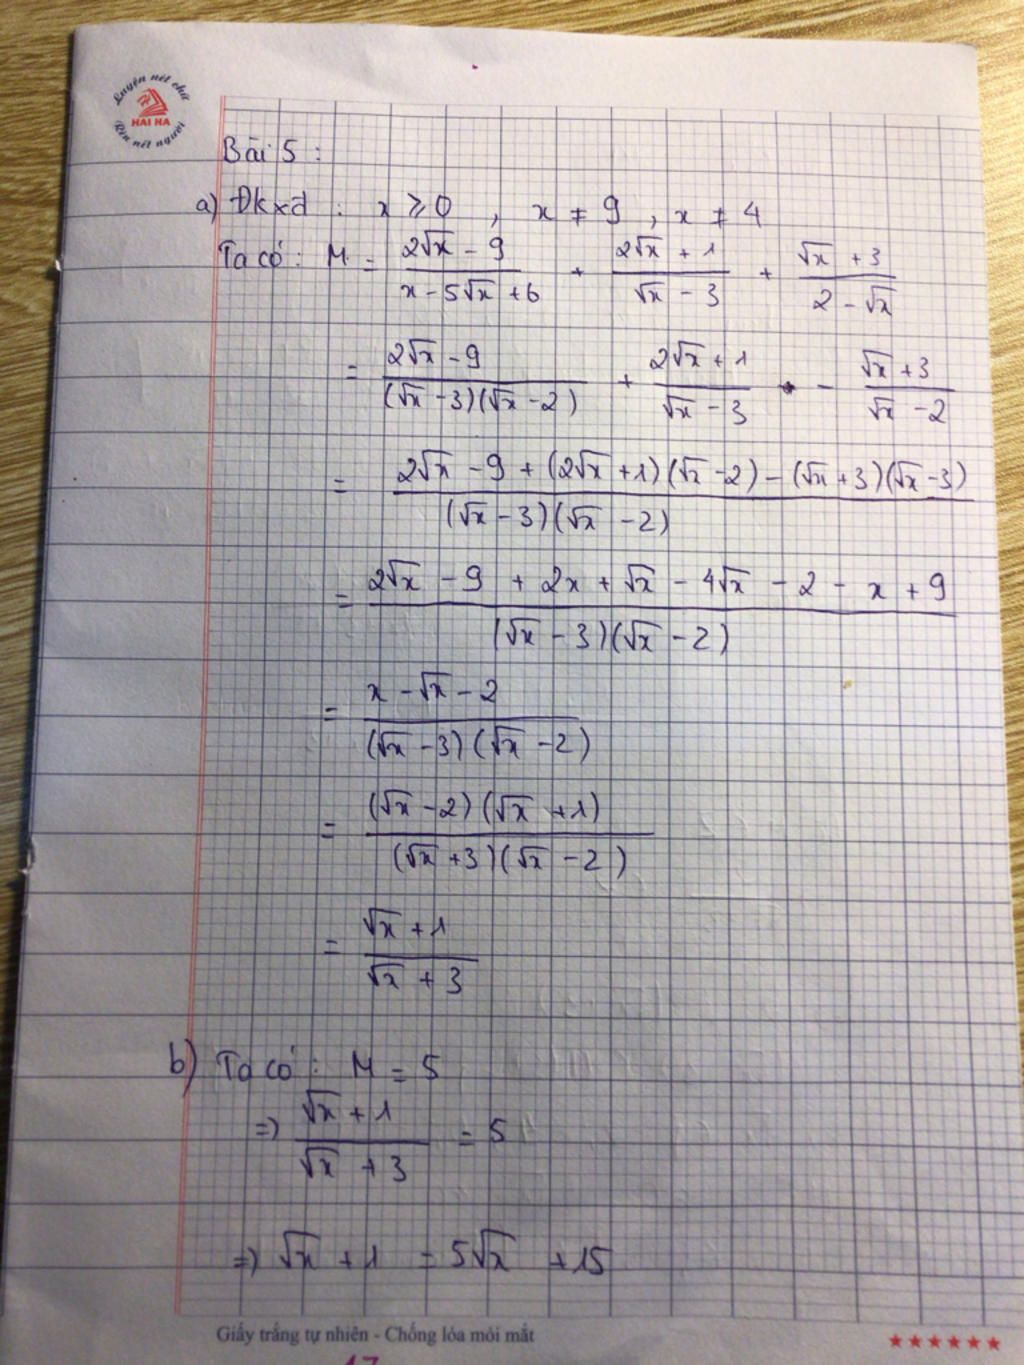 Luyện nét chữ
HẢI HÀ
Rèn nết người
Bài 5 :
a) Đkxđ : x ⩾ 0 , x ≠ 9 , x ≠ 4
Ta có : M = (2√x - 9)/(x - 5√x + 6) + (2√x + 1)/(√x - 3) + (√x + 3)/(2 - √x)
= (2√x - 9)/((√x - 3)(√x - 2)) + (2√x + 1)/(√x - 3) - (√x + 3)/(√x - 2)
= (2√x - 9 + (2√x + 1)(√x - 2) - (√x + 3)(√x - 3))/((√x - 3)(√x - 2))
= (2√x - 9 + 2x + √x - 4√x - 2 - x + 9)/((√x - 3)(√x - 2))
= (x - √x - 2)/((√x - 3)(√x - 2))
= ((√x - 2)(√x + 1))/((√x + 3)(√x - 2))
= (√x + 1)/(√x + 3)
b) Ta có : M = 5
=> (√x + 1)/(√x + 3) = 5
=> √x + 1 = 5√x + 15
Giấy trắng tự nhiên - Chống lóa mỏi mắt
★★★★★★